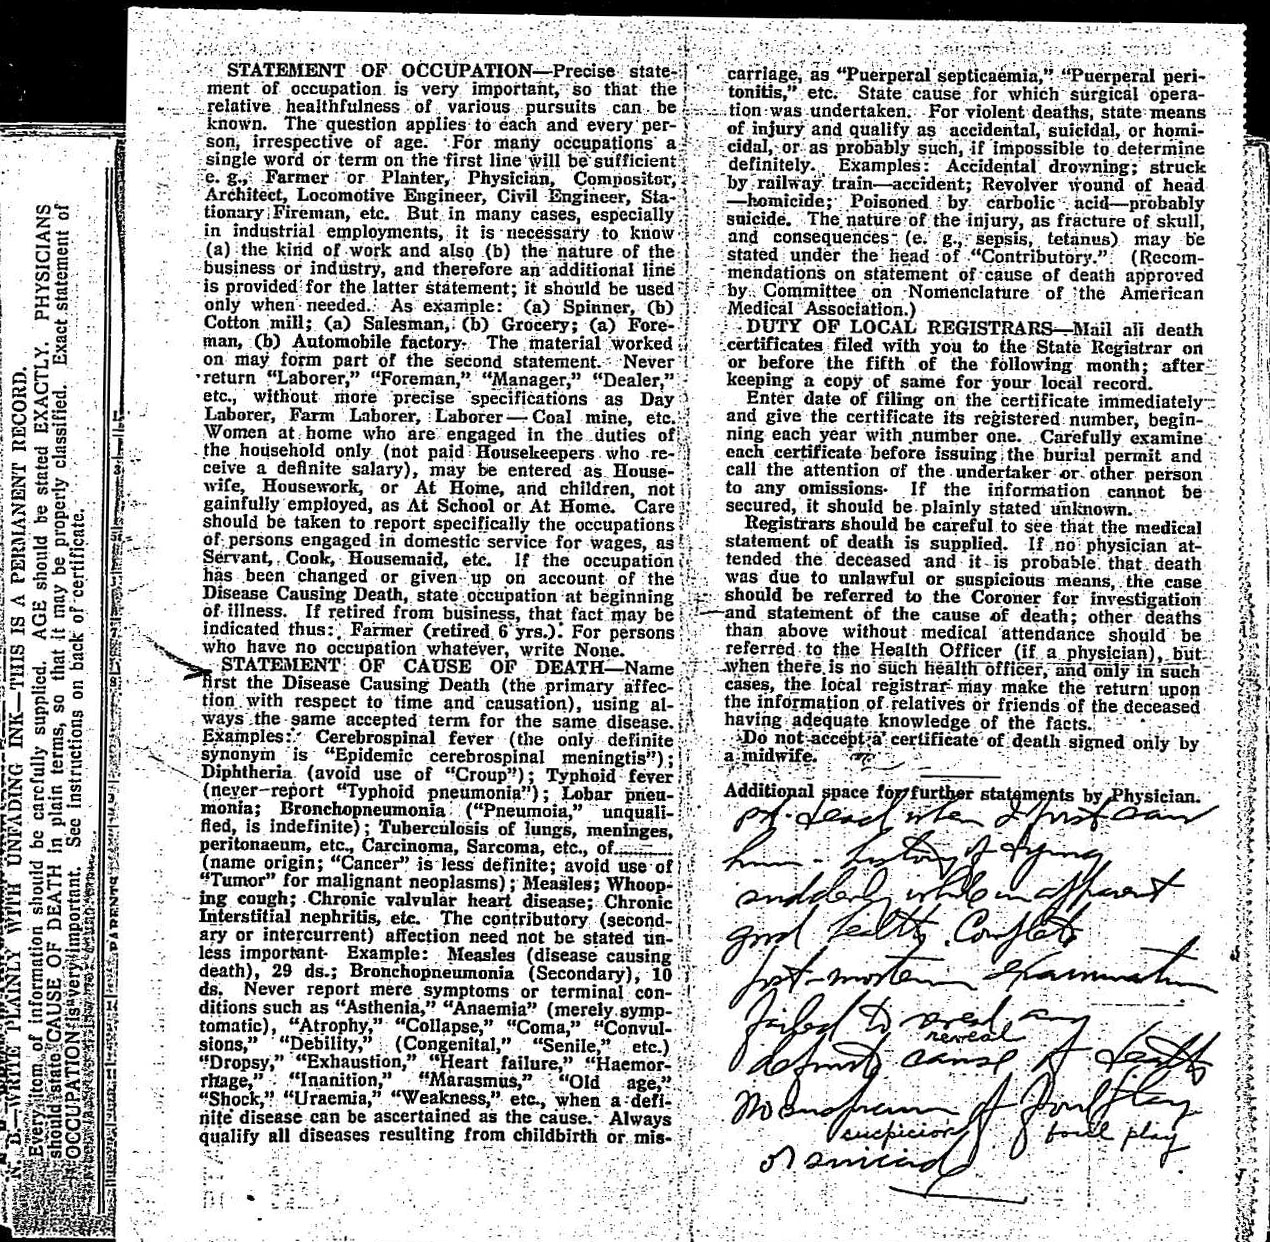 N. B.—WRITE PLAINLY WITH UNFADING INK—THIS IS A PERMANENT RECORD.
Every item of information should be carefully supplied. AGE should be stated EXACTLY. PHYSICIANS
should state CAUSE OF DEATH in plain terms, so that it may be properly classified. Exact statement of
OCCUPATION is very important. See instructions on back of certificate.
PARENTS
STATEMENT OF OCCUPATION—Precise state-
ment of occupation is very important, so that the
relative healthfulness of various pursuits can be
known. The question applies to each and every per-
son, irrespective of age. For many occupations a
single word or term on the first line will be sufficient
e. g., Farmer or Planter, Physician, Compositor,
Architect, Locomotive Engineer, Civil Engineer, Sta-
tionary Fireman, etc. But in many cases, especially
in industrial employments, it is necessary to know
(a) the kind of work and also (b) the nature of the
business or industry, and therefore an additional line
is provided for the latter statement; it should be used
only when needed. As example: (a) Spinner, (b)
Cotton mill; (a) Salesman, (b) Grocery; (a) Fore-
man, (b) Automobile factory. The material worked
on may form part of the second statement. Never
return "Laborer," "Foreman," "Manager," "Dealer,"
etc., without more precise specifications as Day
Laborer, Farm Laborer, Laborer—Coal mine, etc.
Women at home who are engaged in the duties of
the household only (not paid Housekeepers who re-
ceive a definite salary), may be entered as House-
wife, Housework, or At Home, and children, not
gainfully employed, as At School or At Home. Care
should be taken to report specifically the occupations
of persons engaged in domestic service for wages, as
Servant, Cook, Housemaid, etc. If the occupation
has been changed or given up on account of the
Disease Causing Death, state occupation at beginning
of illness. If retired from business, that fact may be
indicated thus: Farmer (retired 6 yrs.). For persons
who have no occupation whatever, write None.
STATEMENT OF CAUSE OF DEATH—Name
first the Disease Causing Death (the primary affec-
tion with respect to time and causation), using al-
ways the same accepted term for the same disease.
Examples: Cerebrospinal fever (the only definite
synonym is "Epidemic cerebrospinal meningtis");
Diphtheria (avoid use of "Croup"); Typhoid fever
(never report "Typhoid pneumonia"); Lobar pneu-
monia; Bronchopneumonia ("Pneumoia," unquali-
fied, is indefinite); Tuberculosis of lungs, meninges,
peritonaeum, etc., Carcinoma, Sarcoma, etc., of......
(name origin; "Cancer" is less definite; avoid use of
"Tumor" for malignant neoplasms); Measles; Whoop-
ing cough; Chronic valvular heart disease; Chronic
Interstitial nephritis, etc. The contributory (second-
ary or intercurrent) affection need not be stated un-
less important. Example: Measles (disease causing
death), 29 ds.; Bronchopneumonia (Secondary), 10
ds. Never report mere symptoms or terminal con-
ditions such as "Asthenia," "Anaemia" (merely symp-
tomatic), "Atrophy," "Collapse," "Coma," "Convul-
sions," "Debility," (Congenital," "Senile," etc.)
"Dropsy," "Exhaustion," "Heart failure," "Haemor-
rhage," "Inanition," "Marasmus," "Old age,"
"Shock," "Uraemia," "Weakness," etc., when a defi-
nite disease can be ascertained as the cause. Always
qualify all diseases resulting from childbirth or mis-
carriage, as "Puerperal septicaemia," "Puerperal peri-
tonitis," etc. State cause for which surgical opera-
tion was undertaken. For violent deaths, state means
of injury and qualify as accidental, suicidal, or homi-
cidal, or as probably such, if impossible to determine
definitely. Examples: Accidental drowning; struck
by railway train—accident; Revolver wound of head
—homicide; Poisoned by carbolic acid—probably
suicide. The nature of the injury, as fracture of skull,
and consequences (e. g., sepsis, tetanus) may be
stated under the head of "Contributory." (Recom-
mendations on statement of cause of death approved
by Committee on Nomenclature of the American
Medical Association.)
DUTY OF LOCAL REGISTRARS—Mail all death
certificates filed with you to the State Registrar on
or before the fifth of the following month; after
keeping a copy of same for your local record.
Enter date of filing on the certificate immediately
and give the certificate its registered number, begin-
ning each year with number one. Carefully examine
each certificate before issuing the burial permit and
call the attention of the undertaker or other person
to any omissions. If the information cannot be
secured, it should be plainly stated unknown.
Registrars should be careful to see that the medical
statement of death is supplied. If no physician at-
tended the deceased and it is probable that death
was due to unlawful or suspicious means, the case
should be referred to the Coroner for investigation
and statement of the cause of death; other deaths
than above without medical attendance should be
referred to the Health Officer (if a physician), but
when there is no such health officer, and only in such
cases, the local registrar may make the return upon
the information of relatives or friends of the deceased
having adequate knowledge of the facts.
Do not accept a certificate of death signed only by
a midwife.
Additional space for further statements by Physician.
pt. dead when I first saw
him - history of dying
suddenly while in apparent
good health. Complete
post-mortem examination
failed to reveal any
reveal
definite cause of death
No suspicion of foul play
suspicion foul play
or suicide